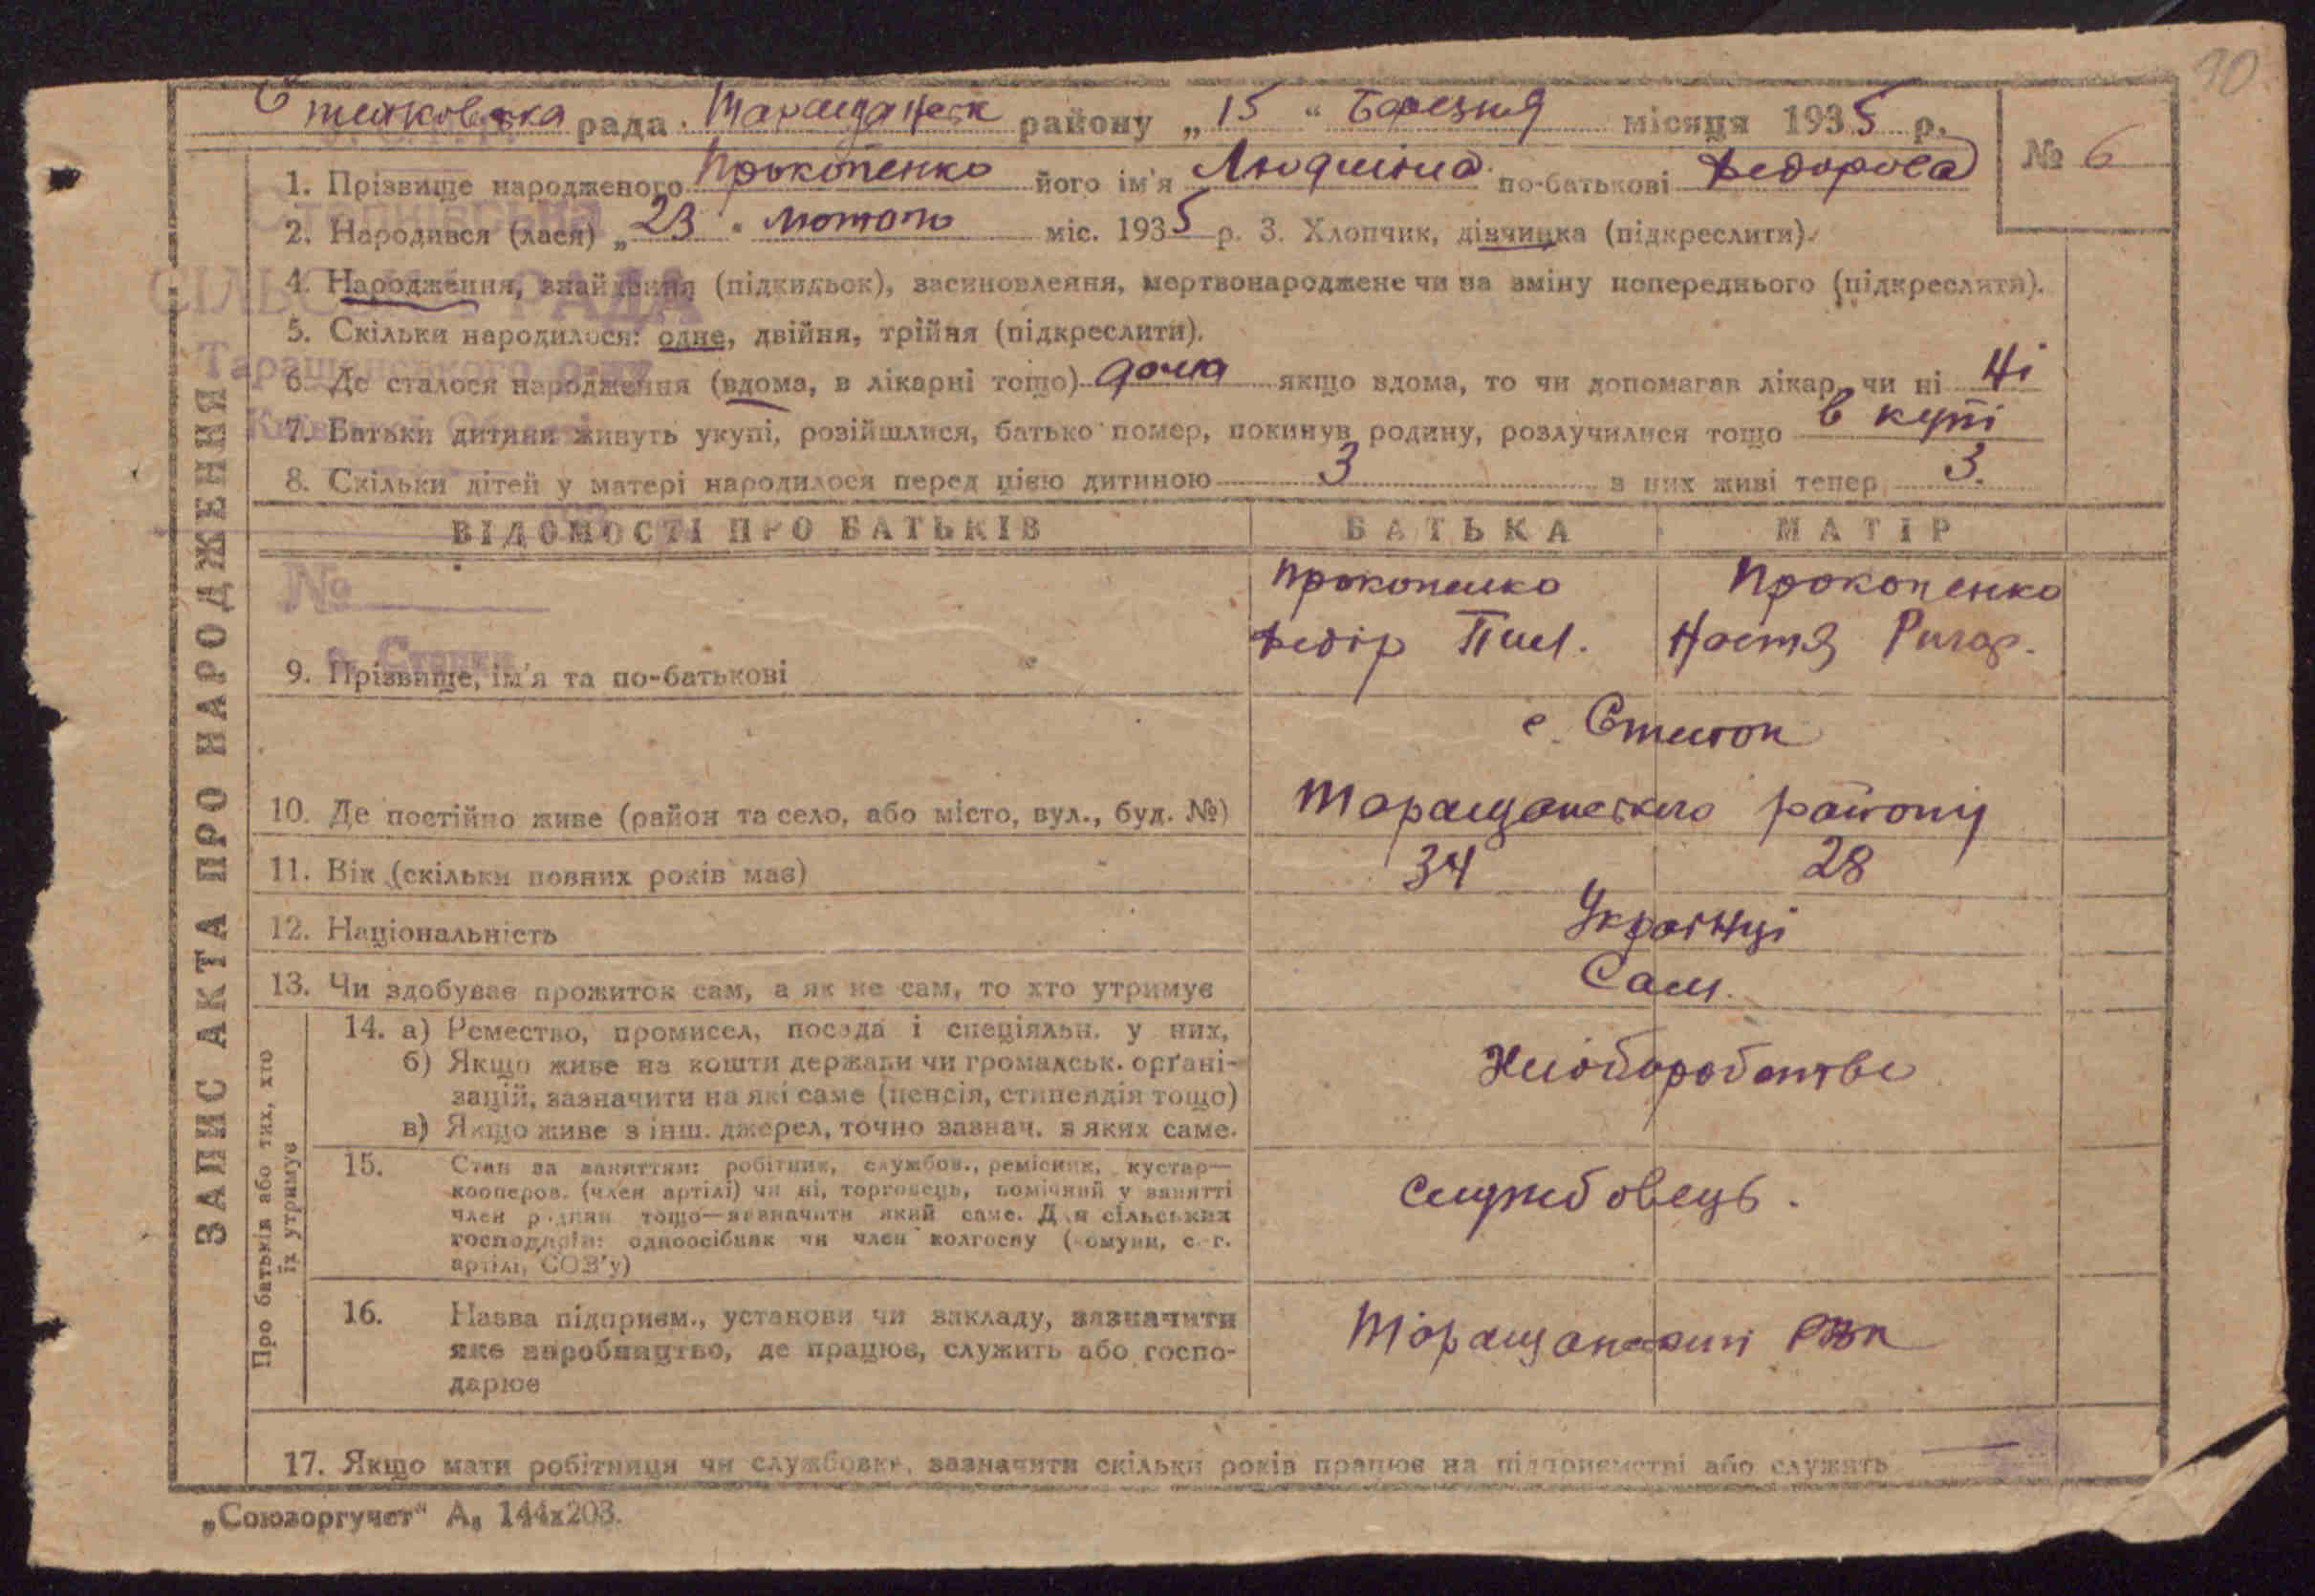 90
рада Таращанськ району „ 15 " Березня місяця 1935 р.
№ 6
1. Прізвище народженого Прокопенко його ім'я Людмила по-батькові Федорова
2. Народився (лася) „ 23 " лютого міс. 1935 р. 3. Хлопчик, дівчинка (підкреслити).
4. Народження, знайдення (підкидьок), засиновлення, мертвонароджене чи на зміну попереднього (підкреслити).
5. Скільки народилося: одне, двійня, трійня (підкреслити).
6. Де сталося народження (вдома, в лікарні тощо) дома якщо вдома, то чи допомагав лікар, чи ні Ні
7. Батьки дитини живуть укупі, розійшлися, батько помер, покинув родину, розлучилися тощо в купі
8. Скільки дітей у матері народилося перед цією дитиною 3 з них живі тепер 3.
СІЛЬСЬКА РАДА
Таращанського р-ну
ЗАПИС АКТА ПРО НАРОДЖЕННЯ
ВІДОМОСТІ ПРО БАТЬКІВ БАТЬКА МАТІР
№
9. Прізвище, ім'я та по-батькові
Прокопенко
Федір Пил.
Прокопенко
Настя Ригор.
10. Де постійно живе (район та село, або місто, вул., буд. №)
с.
Таращанського району
11. Вік (скільки повних років має) 34 28
12. Національність Українці
13. Чи здобуває прожиток сам, а як не сам, то хто утримує Сам.
Про батьків або тих, хто
їх утримує
14. а) Ремество, промисел, посада і спеціяльн. у них,
б) Якщо живе на кошти держави чи громадськ. орґані-
зацій, зазначити на які саме (пенсія, стипендія тощо)
в) Якщо живе з інш. джерел, точно зазнач. з яких саме.
Хліборобство
15. Стан за заняттям: робітник, службов., ремісник, кустар—
кооперов. (член артілі) чи ні, торговець, помічний у занятті
член родини тощо—зазначити який саме. Для сільських
господарів: одноосібник чи член колгоспу (комуни, с.-г.
артілі, СОЗ'у)
службовець.
16. Назва підприєм., установи чи закладу, зазначити
яке виробництво, де працює, служить або госпо-
дарює
Таращанський РВК
17. Якщо мати робітниця чи службовка, зазначити скільки років працює на підприємстві або служить —
„Союзоргучет" А₅ 144x203.